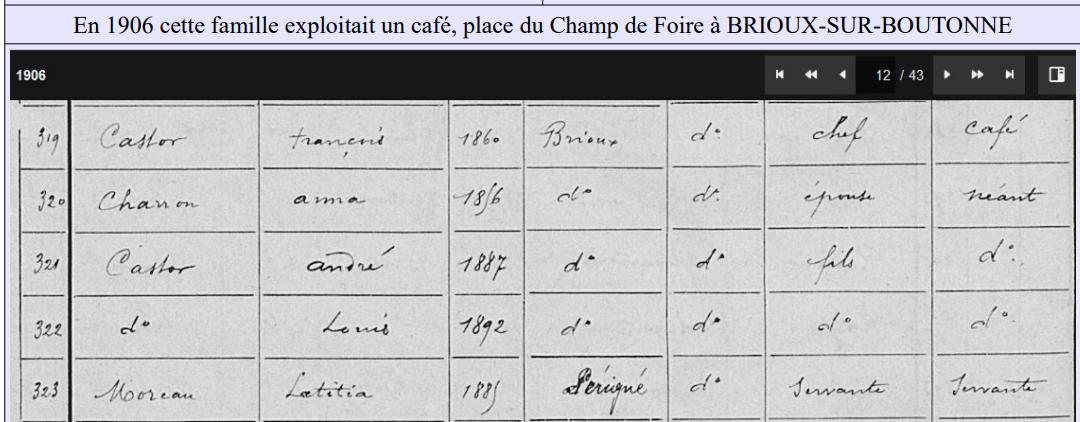 En 1906 cette famille exploitait un café, place du Champ de Foire à BRIOUX-SUR-BOUTONNE
1906 12 / 43
319 Castor françois 1860 Brioux d° chef café
320 Charron anna 1856 d° d° épouse néant
321 Castor andré 1887 d° d° fils d°
322 d° Louis 1892 d° d° d° d°
323 Moreau Lætitia 1885 Périgné d° Servante Servante